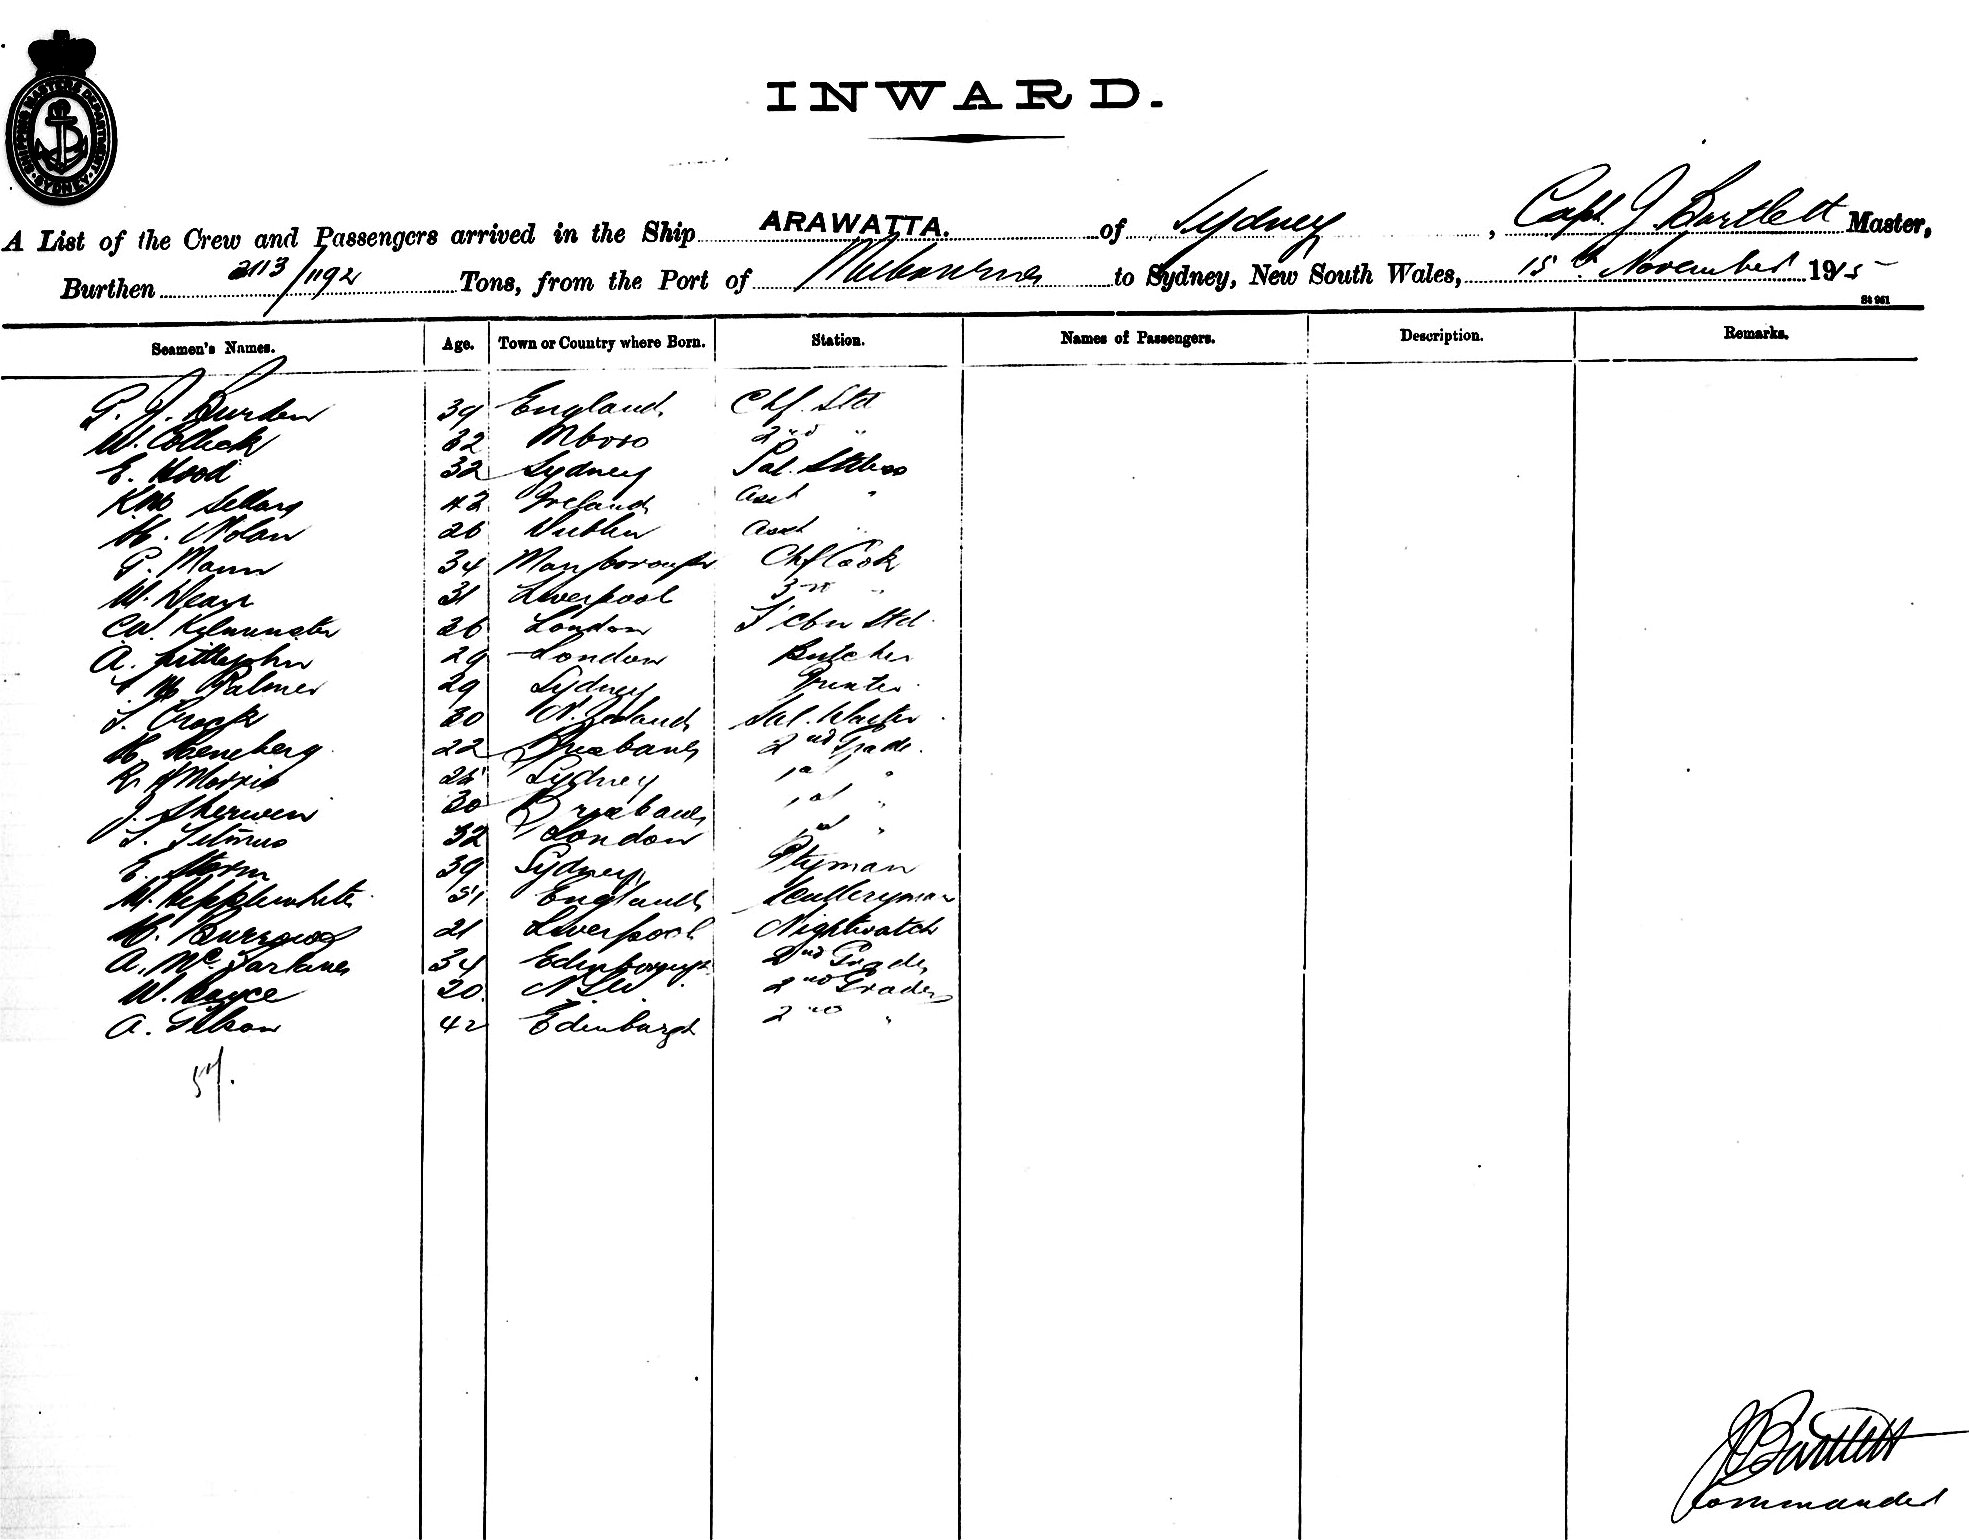 SHIPPING MASTERS DEPARTMENT. SYDNEY
INWARD.
A List of the Crew and Passengers arrived in the Ship ARAWATTA. of Sydney, Capt. J Bartlett Master,
Burthen 2113/1192 Tons, from the Port of Melbourne to Sydney, New South Wales, 15th November 1915
St 961
Seamen's Names. Age. Town or Country where Born. Station. Names of Passengers. Description. Remarks.
G. J. Burden 39 England Chf. Std
W. Collick 32 Mboro 2nd "
E. Hood 32 Sydney Sal. Stdess
Sellars 42 Ireland Asst "
H. Nolan 26 Dublin Asst "
G. Mann 34 Maryborough Chf Cook
W. Dean 31 Liverpool 3rd "
CW. Kilminster 26 London F' cbn Std.
A. Littlejohn 29 London Butcher
Palmer 29 Sydney Printer
Crock 30 N. Zealand Sal. Waiter
H. 22 Brisbane 2nd Grade.
R. J Morris 25 Sydney 1st "
J. Sherwin 30 Brisbane 1st "
T. Titmus 32 London 1st "
E. Storm 39 Sydney Ptyman
W. Hepplewhite 51 England Sculleryman
H. Burrows 21 Liverpool Nightwatch
A. McFarlane 34 Edinborough 2nd Grade
W. 30 NSW. 2nd Grade
A. 42 Edinburgh 2nd "
57.
J Bartlett
Commander